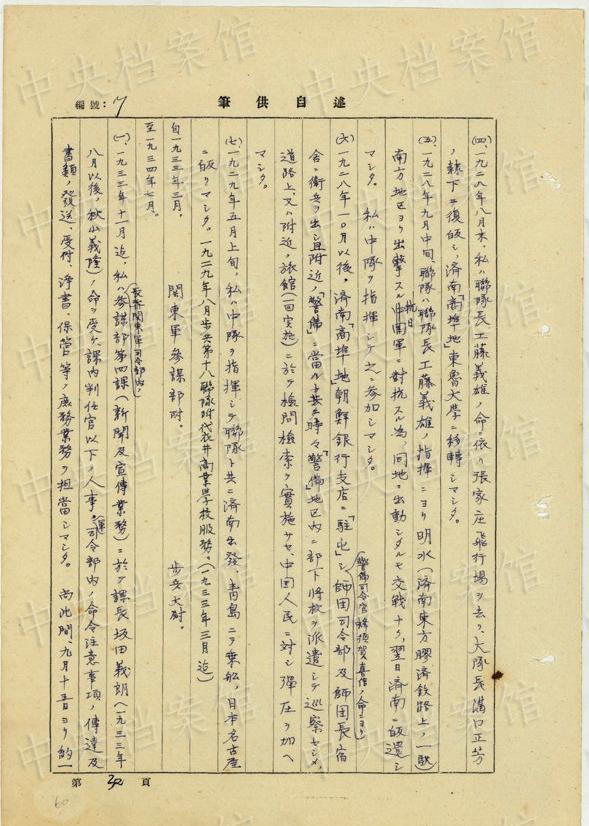 編號：7
述自供筆
(四)一九二八年八月末、私ハ聯隊長工藤義雄ノ命ニ依リ張家庄飛行場ヲ去リ、大隊長溝口正芳
ノ隷下ニ復皈シ、済南「商埠地」東魯大學ニ移轉シマシタ。
(五)一九二八年九月中旬、聯隊ハ聯隊長工藤義雄ノ指揮ニヨリ明水(済南東方膠済鉄路上ノ一駅)
南方地区ヨリ出撃スル抗日中国軍ニ対抗スル為、同地ニ出動シタルモ交戦ナク、翌日済南ニ皈還シ
マシタ。 私ハ中隊ヲ指揮シテ之ニ参加シマシタ。
(六)一九二八年一〇月以後、済南「商埠」地朝鮮銀行支店ニ「駐屯」シ(警備司令官 ノ命ニヨリ)師団司令部及師団長宿
舎ニ衛兵ヲ出シ且附近ノ「警備」ニ當ルト共ニ時々「警備」地区内ニ部下將校ヲ派遣シテ巡察セシメ、
道路上、又ハ附近ノ旅館(一回実施)ニ於テ検問検索ヲ實施サセ、中国人民ニ対シ弾圧ヲ加ヘ
マシタ。
(七)一九二九年五月上旬、私ハ中隊ヲ指揮シテ聯隊ト共ニ済南出發、青島ニテ乗船、日本名古屋
ニ皈リマシタ。一九二九年八月歩兵第十八聯隊附 商業學校服務。(一九三三年三月迄)
自一九三三年三月。
至一九三四年七月。 関東軍参謀部附。 歩兵大尉。
(一)一九三三年十一月迄、私ハ(長春関東軍司令部内ノ)参謀部第四課(新聞及宣傳業務)ニ於テ課長坂田義朗(一九三三年
八月以後ハ秋山義隆)ノ命ヲ受ケ、課内判任官以下ノ人事、司令部内ノ命令注意事項ノ傳達及
書類ノ發送、受付、浄書、保管等ノ庶務業務ヲ担當シマシタ。 尚此間、九月十五日ヨリ約一
第 頁
60
中央档案馆